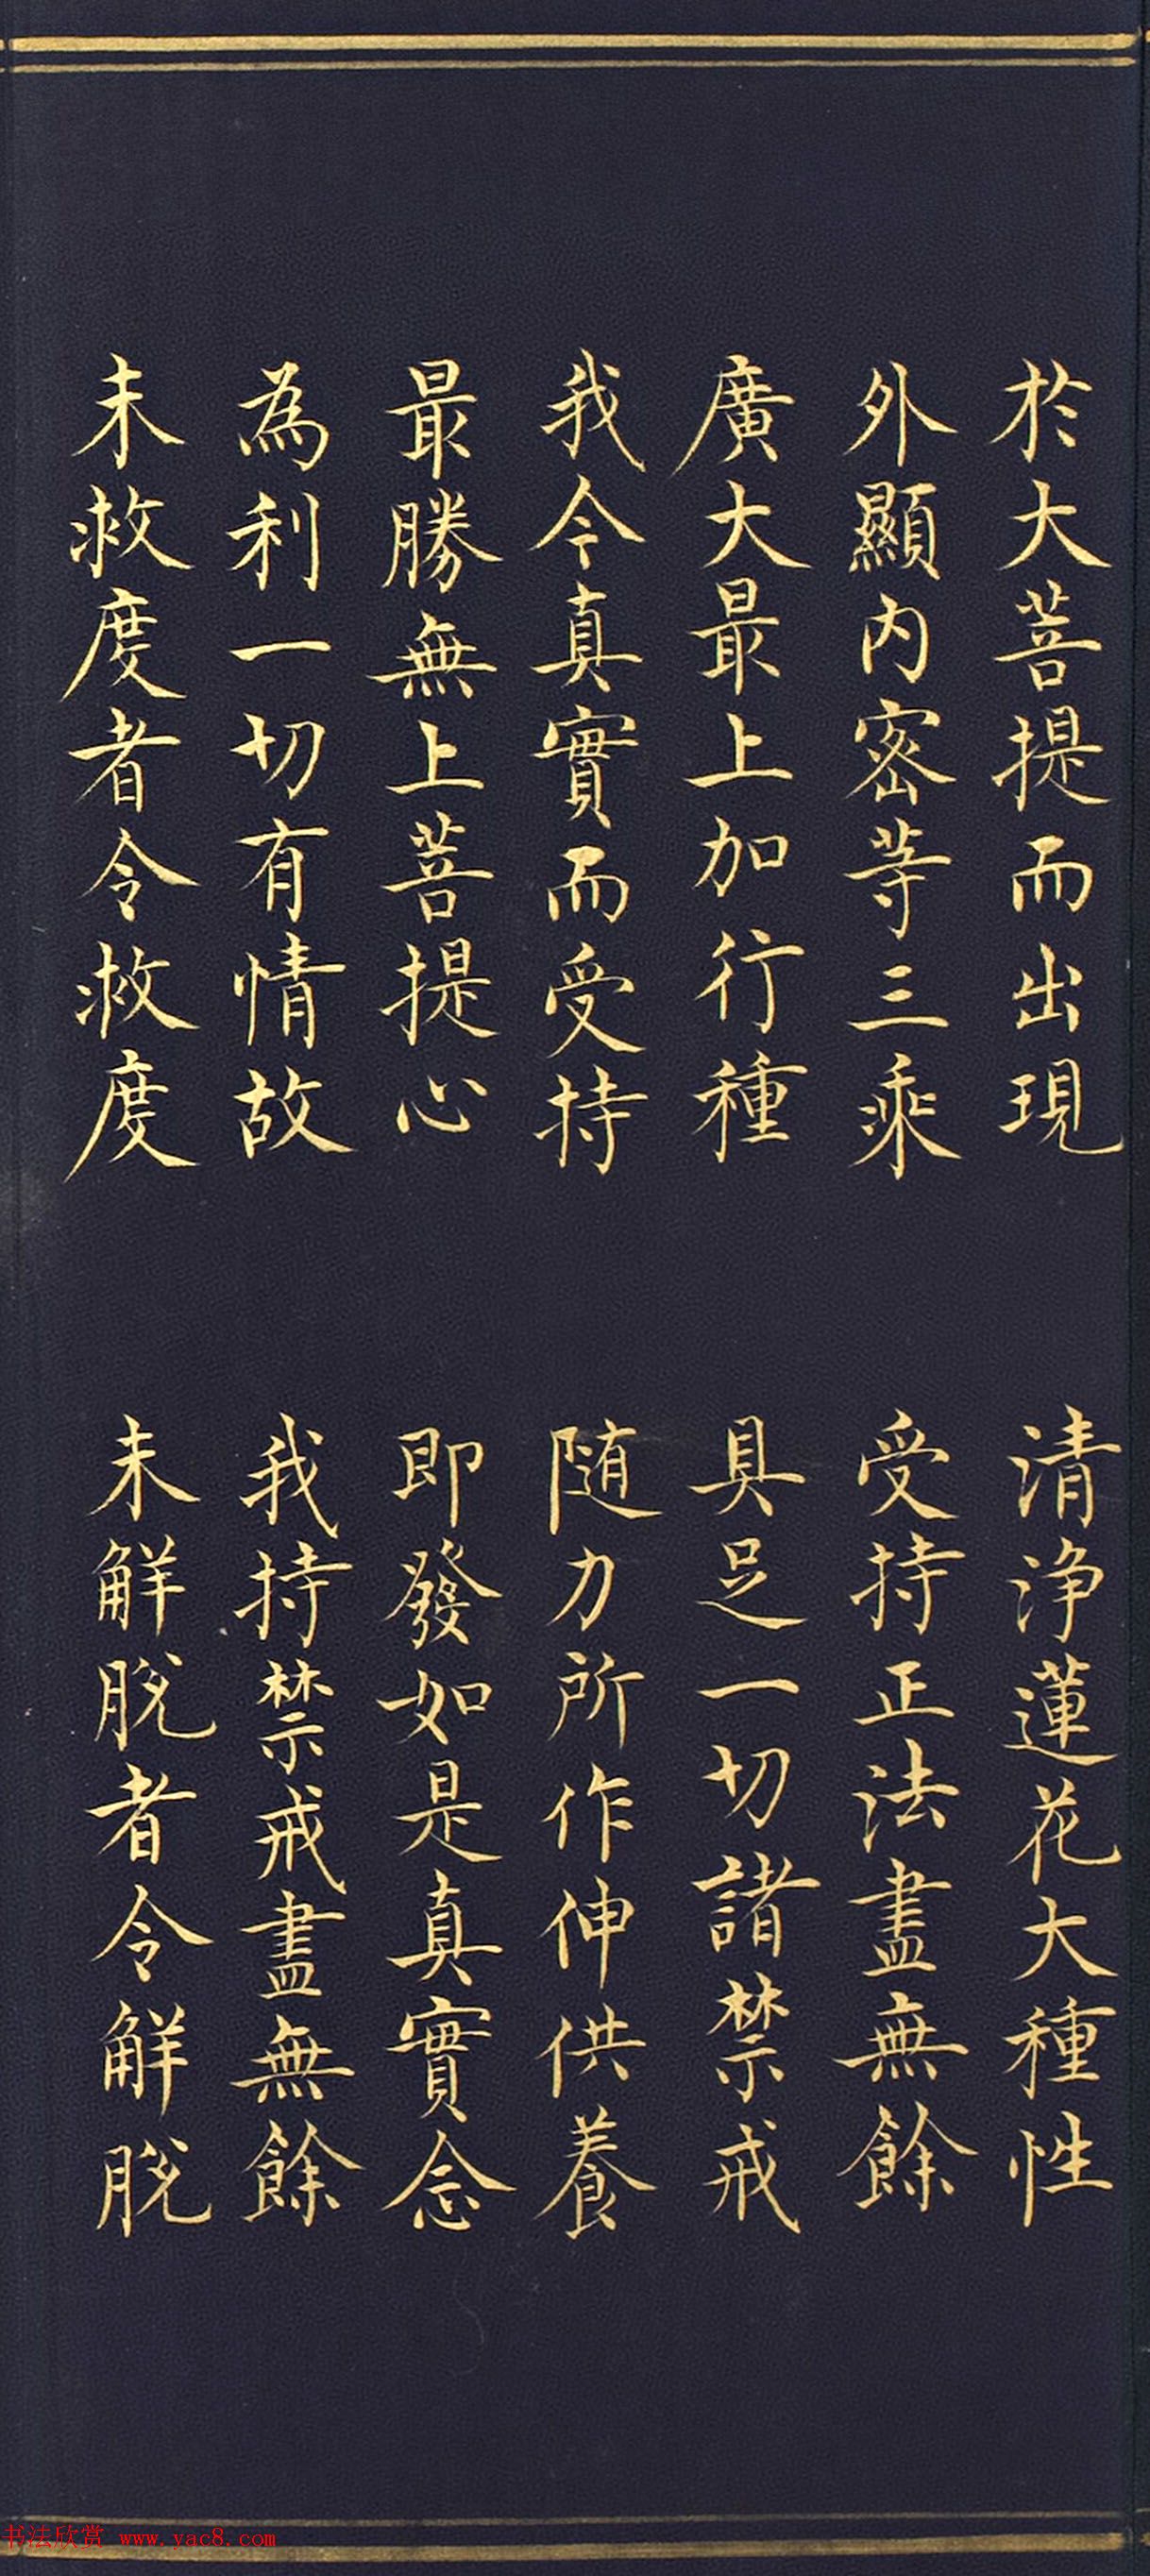 於大菩提而出現　清淨蓮花大種性
外顯內密等三乘　受持正法盡無餘
廣大最上加行種　具足一切諸禁戒
我今真實而受持　随力所作伸供養
最勝無上菩提心　即發如是真實念
為利一切有情故　我持禁戒盡無餘
未救度者令救度　未解脫者令解脫
书法欣赏 www.yac8.com